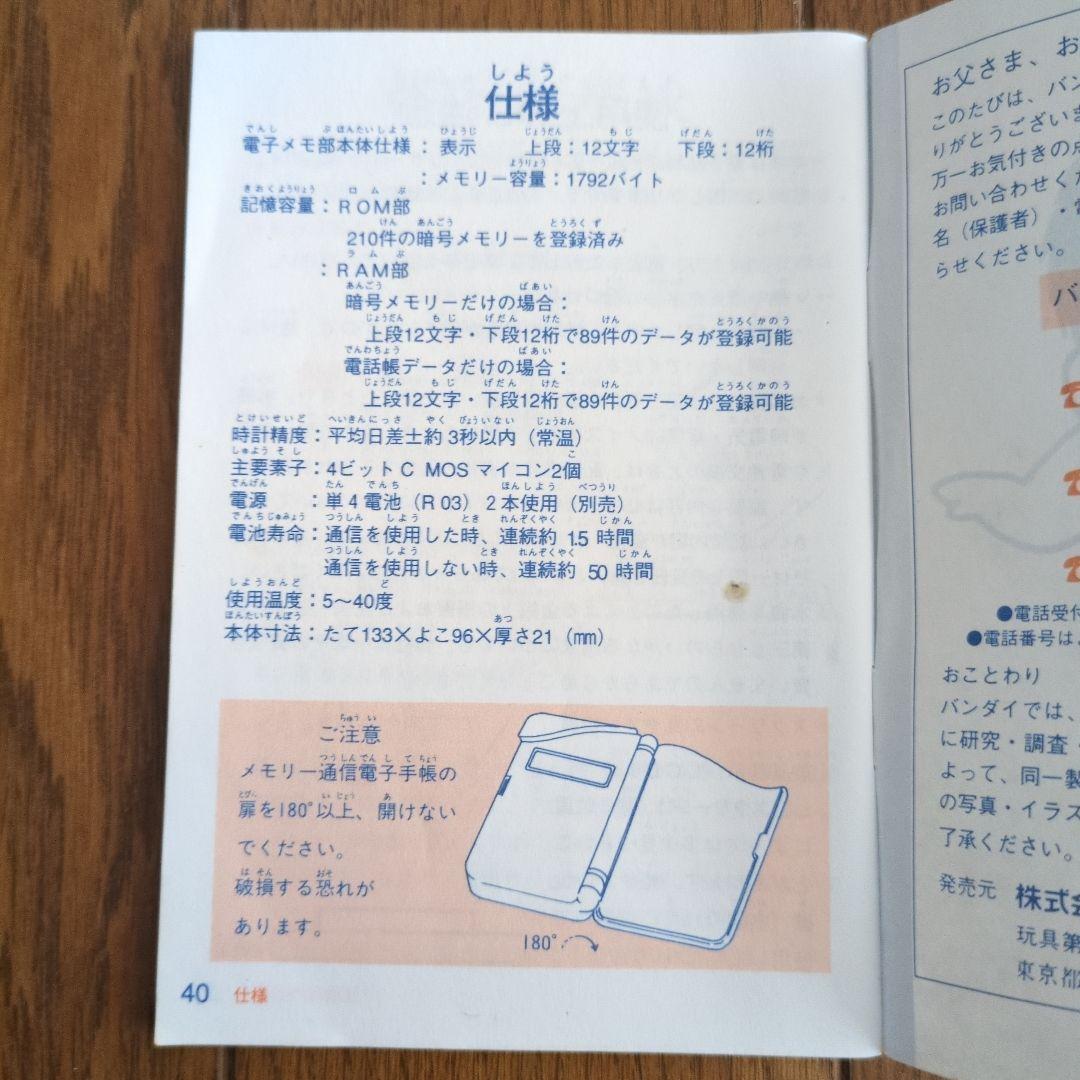 仕様
電子メモ部本体仕様：表示　上段：12文字　下段：12桁
：メモリー容量：1792バイト
記憶容量：ROM部
210件の暗号メモリーを登録済み
：RAM部
暗号メモリーだけの場合：
上段12文字・下段12桁で89件のデータが登録可能
電話帳データだけの場合：
上段12文字・下段12桁で89件のデータが登録可能
時計精度：平均日差士約3秒以内（常温）
主要素子：4ビットC MOSマイコン2個
電源　：単4電池（R03）2本使用（別売）
電池寿命：通信を使用した時、連続約 1.5 時間
通信を使用しない時、連続約 50 時間
使用温度：5〜40度
本体寸法：たて133×よこ96×厚さ21（mm）
ご注意
メモリー通信電子手帳の
扉を180°以上、開けない
でください。
破損する恐れが
あります。
180°
40 仕様
お父さま、お
このたびは、バン
りがとうございま
万一お気付きの点
お問い合わせくだ
名（保護者）・電
らせください。
バ
●電話受付
●電話番号は
おことわり
バンダイでは、
に研究・調査・
よって、同一製
の写真・イラス
了承ください。
発売元 株式会
玩具第
東京都